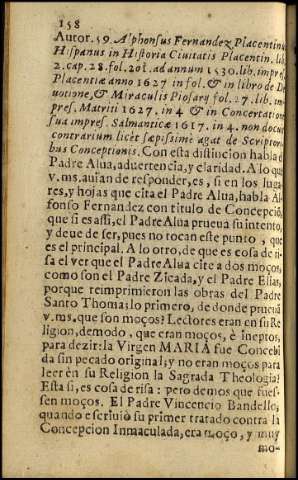 158
Autor. 59. Alphonsus Fernandez Placentinus
Hispanus in Historia Ciuitatis Placentin. lib.
2. cap. 28. fol. 201. ad annum 1530. lib. impres.
Placentiæ anno 1627 in fol. & in libro de De
uotione, & Miraculis Piosarũ fol. 27. lib. im
pres. Matriti 1627. in 4 & in Concertation
sua impres. Salmanticæ 1617. in 4. non docui
contrarium licèt sæpissimè agat de Scriptor
bus Conceptionis. Con esta distincion habla el
Padre Alua, aduertencia, y claridad. A lo que
v.ms. auian de responder, es, si en los luga
res, y hojas que cita el Padre Alua, habla Al
fonso Fernandez con titulo de Concepciõ,
que si es assi, el Padre Alua prueua su intento,
y deue de ser, pues no tocan este punto, que
es el principal. A lo otro, de que es cosa de ri
sa el ver que el Padre Alua cite a dos moços,
como son el Padre Zicada, y el Padre Elias,
porque reimprimieron las obras del Padre
Santo Thoma; lo primero, de donde prueuã
v.ms. que son moços? Lectores eran en su Re
ligion, demodo, que eran moços, è ineptos,
para dezir: la Virgen MARIA fue Concebi
da sin pecado original; y no eran moços para
leer en su Religion la Sagrada Theologia?
Esta si, es cosa de risa: pero demos que fues-
sen moços. El Padre Vincencio Bandello,
quando escriuiò su primer tratado contra la
Concepcion Inmaculada, era moço, y muy
mo-